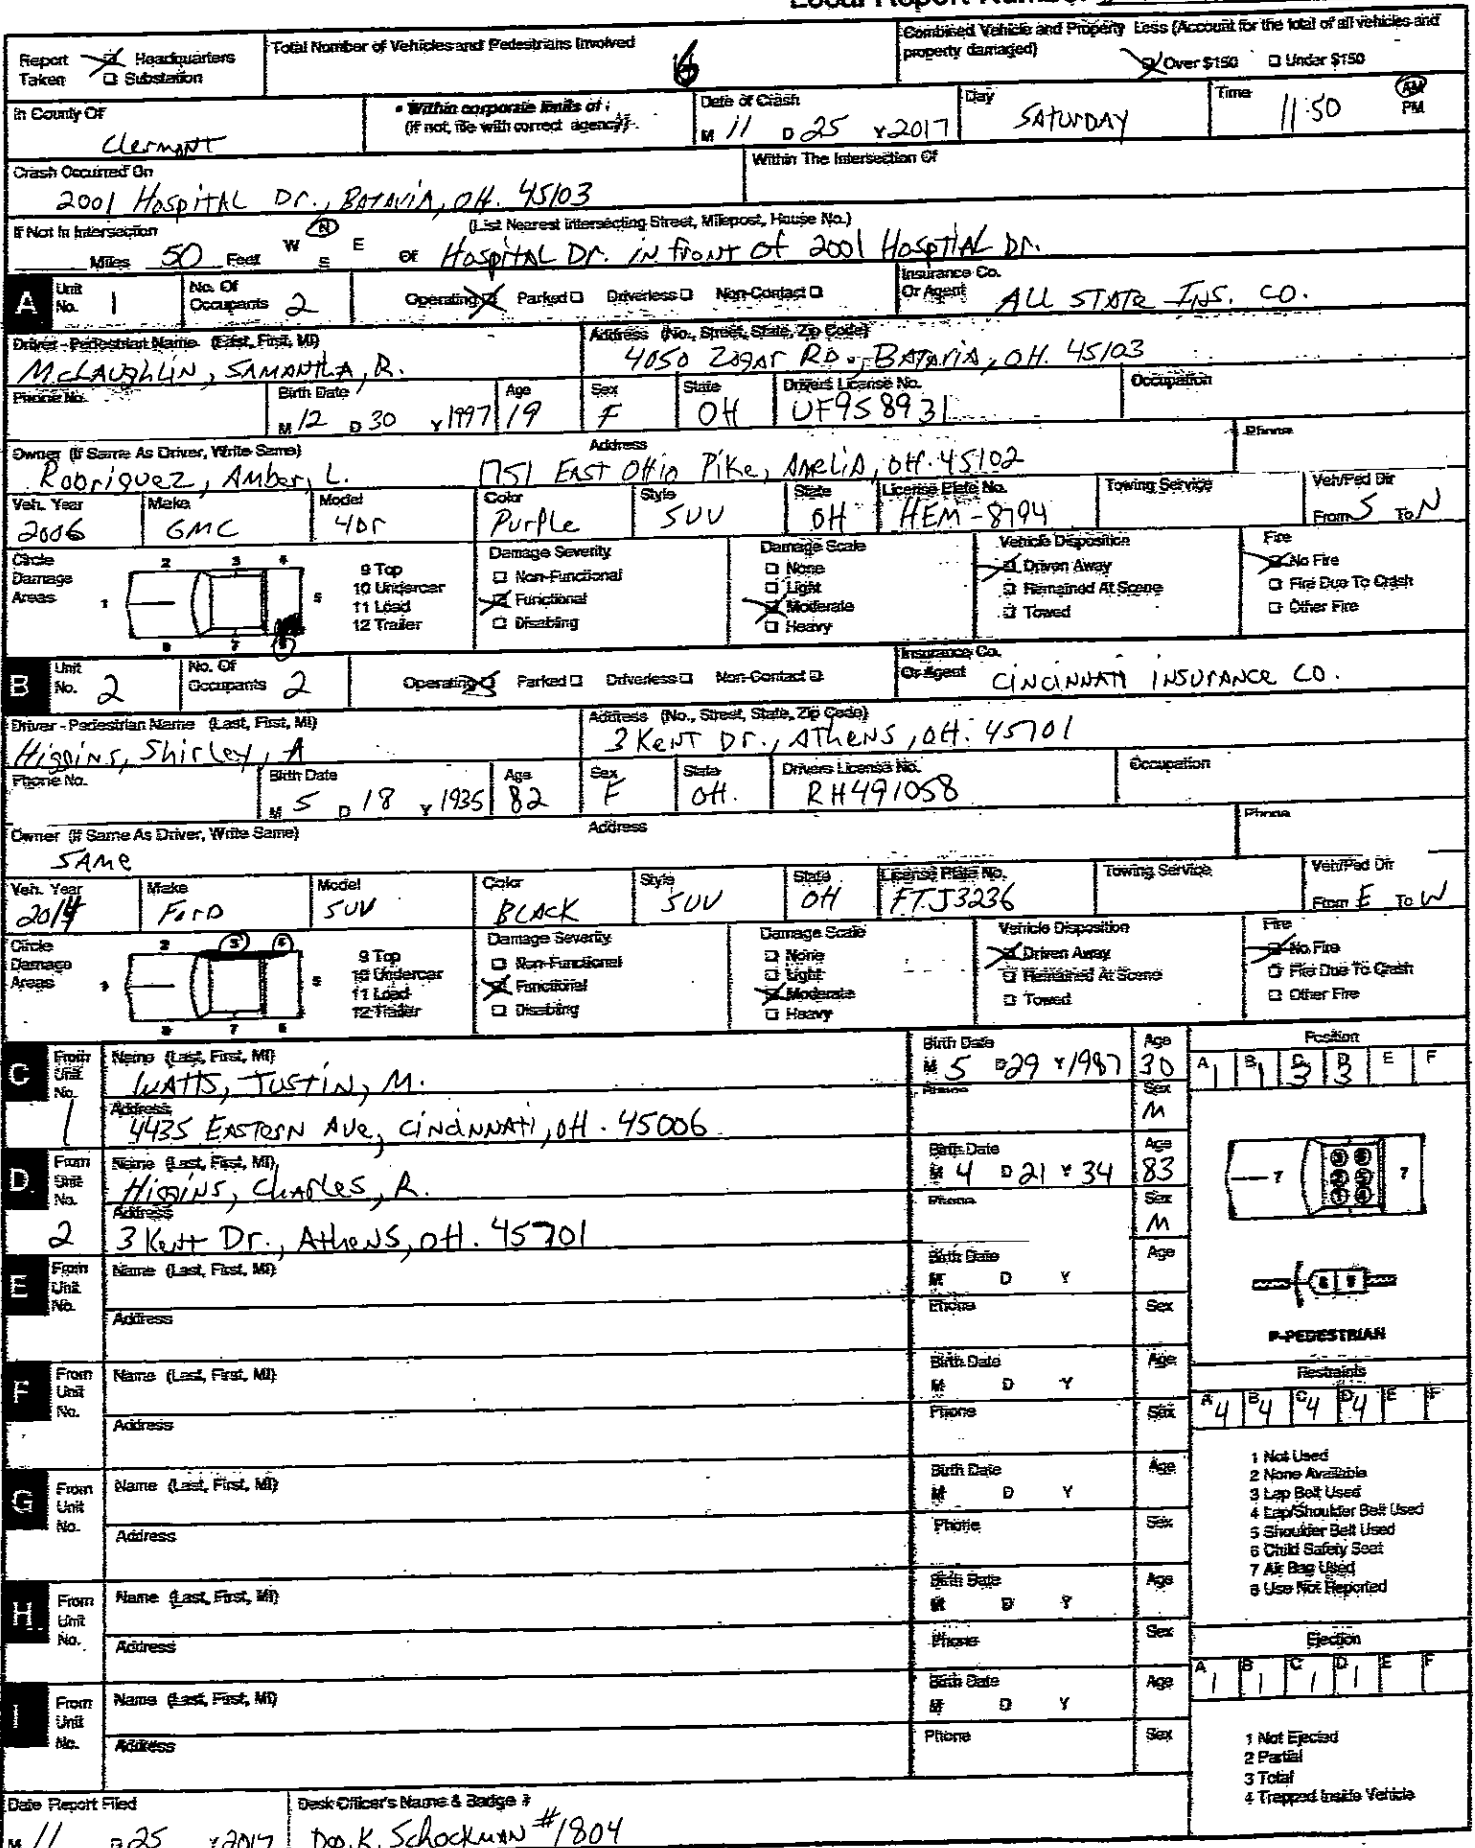 Local Report Number
Report Taken Headquarters Substation
Total Number of Vehicles and Pedestrians Involved 6
Combined Vehicle and Property Less (Account for the total of all vehicles and property damaged) Over $150 Under $150
In County Of Clermont
• Within corporate limits of: (If not, file with correct agency).
Date of Crash M 11 D 25 Y 2017
Day SATURDAY
Time 11:50 AM PM
Crash Occurred On 2001 Hospital Dr., Batavia, OH. 45103
Within The Intersection Of
If Not In Intersection Miles 50 Feet W N E S Of
(List Nearest Intersecting Street, Milepost, House No.)
Hospital Dr. in front of 2001 Hosptial Dr.
A Unit No. 1 No. Of Occupants 2 Operating Parked Driverless Non-Contact Insurance Co. Or Agent ALL STATE INS. CO.
Driver - Pedestrian Name (Last, First, MI) McLAUGHLIN, SAMANTHA, R.
Address (No., Street, State, Zip Code) 4050 Zagar RD., BATAVIA, OH. 45103
Phone No. Birth Date M 12 D 30 Y 1997 Age 19 Sex F State OH Drivers License No. UF958931 Occupation
Owner (If Same As Driver, Write Same) Rodriguez, Amber, L. Address 1751 East Ohio Pike, Amelia, OH. 45102 Phone
Veh. Year 2006 Make GMC Model 4Dr Color Purple Style SUV State OH License Plate No. HEM-8794 Towing Service Veh/Ped Dir From S To N
Circle Damage Areas 1 2 3 4 5 6 7 8
9 Top
10 Undercar
11 Load
12 Trailer
Damage Severity
Non-Functional
Functional
Disabling
Damage Scale
None
Light
Moderate
Heavy
Vehicle Disposition
Driven Away
Remained At Scene
Towed
Fire
No Fire
Fire Due To Crash
Other Fire
B Unit No. 2 No. Of Occupants 2 Operating Parked Driverless Non-Contact Insurance Co. Or Agent CINCINNATI INSURANCE CO.
Driver - Pedestrian Name (Last, First, MI) Higgins, Shirley, A
Address (No., Street, State, Zip Code) 3 KENT Dr., ATHENS, OH. 45701
Phone No. Birth Date M 5 D 18 Y 1935 Age 82 Sex F State OH. Drivers License No. RH491058 Occupation
Owner (If Same As Driver, Write Same) SAME Address Phone
Veh. Year 2014 Make Ford Model SUV Color BLACK Style SUV State OH License Plate No. FTJ3236 Towing Service Veh/Ped Dir From E To W
Circle Damage Areas 1 2 3 4 5 6 7 8
9 Top
10 Undercar
11 Load
12 Trailer
Damage Severity
Non-Functional
Functional
Disabling
Damage Scale
None
Light
Moderate
Heavy
Vehicle Disposition
Driven Away
Remained At Scene
Towed
Fire
No Fire
Fire Due To Crash
Other Fire
C From Unit No. 1 Name (Last, First, MI) WATTS, JUSTIN, M. Birth Date M 5 D 29 Y 1987 Age 30
Address 4435 EASTERN AVE, CINCINNATI, OH. 45006 Phone Sex M
D From Unit No. 2 Name (Last, First, MI) Higgins, Charles, R. Birth Date M 4 D 21 Y 34 Age 83
Address 3 Kent Dr., Athens, OH. 45701 Phone Sex M
E From Unit No. Name (Last, First, MI) Birth Date M D Y Age
Address Phone Sex
F From Unit No. Name (Last, First, MI) Birth Date M D Y Age
Address Phone Sex
G From Unit No. Name (Last, First, MI) Birth Date M D Y Age
Address Phone Sex
H From Unit No. Name (Last, First, MI) Birth Date M D Y Age
Address Phone Sex
I From Unit No. Name (Last, First, MI) Birth Date M D Y Age
Address Phone Sex
Position
A 1 B 1 C 3 D 3 E F
7 7
P-PEDESTRIAN
Restraints
A 4 B 4 C 4 D 4 E F
1 Not Used
2 None Available
3 Lap Belt Used
4 Lap/Shoulder Belt Used
5 Shoulder Belt Used
6 Child Safety Seat
7 Air Bag Used
8 Use Not Reported
Ejection
A 1 B 1 C 1 D 1 E F
1 Not Ejected
2 Partial
3 Total
4 Trapped Inside Vehicle
Date Report Filed M 11 D 25 Y 2017
Desk Officer's Name & Badge # Dep. K. Schockman #1804